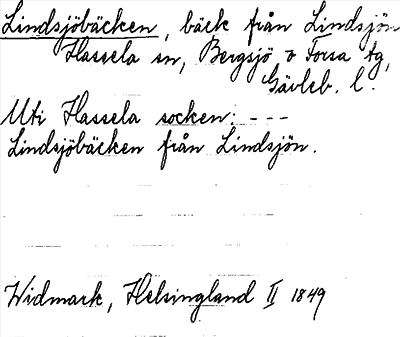 Lindsjöbäcken, bäck från Lindsjön
Hassela sn, Bergsjö o Forsa tg,
Gävleb. l.
Uti Hassela socken: - - -
Lindsjöbäcken från Lindsjön.
Widmark, Helsingland II 1849